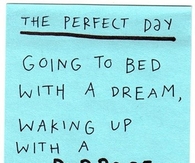 THE PERFECT DAY
GOING TO BED
WITH A DREAM,
WAKING UP
WITH A